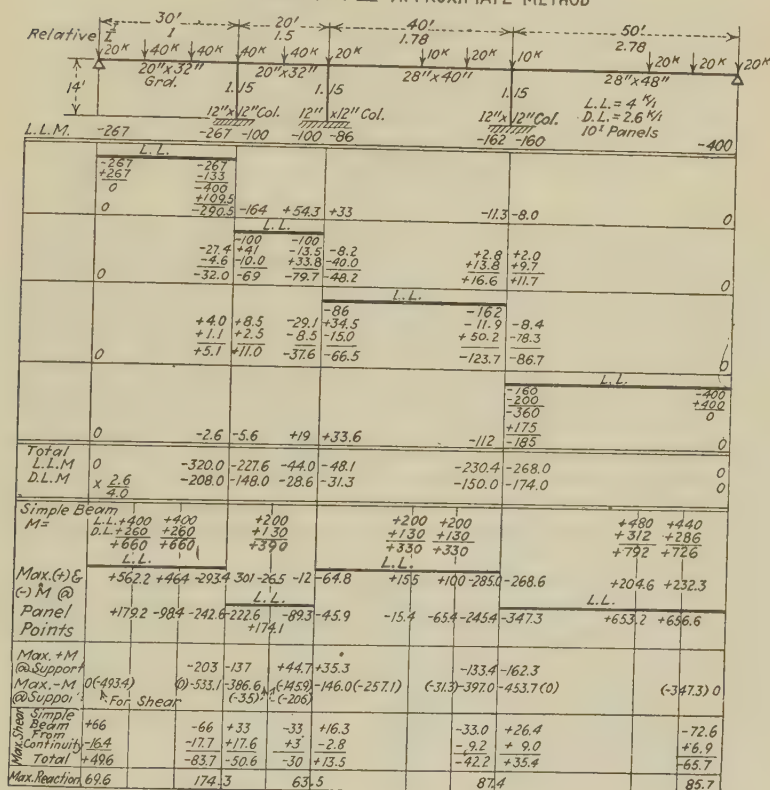 APPROXIMATE METHOD
30' 20' 40' 50'
Relative I/L 1 1.5 1.78 2.78
20K 40K 40K 40K 40K 20K 10K 20K 10K 20K 20K 20K
20"x32" Grd. 20"x32" 28"x40" 28"x48"
14' 1.15 1.15 1.15
12"x12" Col. 12"x12" Col. 12"x12" Col.
L.L.= 4 K/1
D.L.= 2.6 K/1
10' Panels
L.L.M. -267 -267 -100 -100 -86 -162 -160 -400
L.L.
-267 -267
+267 -133
0 -400
+109.5
0 -290.5 -164 +54.3 +33 -11.3 -8.0 0
L.L.
-100 -100
-27.4 +41 -13.5 -8.2 +2.8 +2.0
-4.6 -10.0 +33.8 -40.0 +13.8 +9.7
0 -32.0 -69 -79.7 -48.2 +16.6 +11.7 0
L.L.
-86 -162
+4.0 +8.5 -29.1 +34.5 -11.9 -8.4
+1.1 +2.5 -8.5 -15.0 +50.2 -78.3
0 +5.1 +11.0 -37.6 -66.5 -123.7 -86.7 0
L.L.
-160 -400
-200 +400
-360 0
+175
0 -2.6 -5.6 +19 +33.6 -112 -185 0
Total
L.L.M 0 -320.0 -227.6 -44.0 -48.1 -230.4 -268.0 0
D.L.M x 2.6/4.0 -208.0 -148.0 -28.6 -31.3 -150.0 -174.0 0
Simple Beam
M= L.L.+400 +400 +200 +200 +200 +480 +440
D.L.+260 +260 +130 +130 +130 +312 +286
+660 +660 +390 +330 +330 +792 +726
L.L. L.L.
Max.(+)& +562.2 +464 -293.4 301 -26.5 -12 -64.8 +155 +100 -285.0 -268.6 +204.6 +232.3
(-) M @ L.L. L.L.
Panel +179.2 -98.4 -242.6 -222.6 -89.3 -45.9 -15.4 -65.4 -245.4 -347.3 +653.2 +656.6
Points +174.1
Max. +M
@Support -203 -137 +44.7 +35.3 -133.4 -162.3
Max. -M 0(-493.4) (0)-533.1 -386.6 (-145.9) -146.0(-257.1) (-31.3)-397.0 -453.7(0) (-347.3) 0
@Suppo For Shear (-35) (-206)
Max. Shear
Simple Beam +66 -66 +33 -33 +16.3 -33.0 +26.4 -72.6
From Continuity -16.4 -17.7 +17.6 +3 -2.8 -9.2 +9.0 +6.9
Total +49.6 -83.7 -50.6 -30 +13.5 -42.2 +35.4 -65.7
Max. Reaction 69.6 174.3 63.5 87.4 85.7